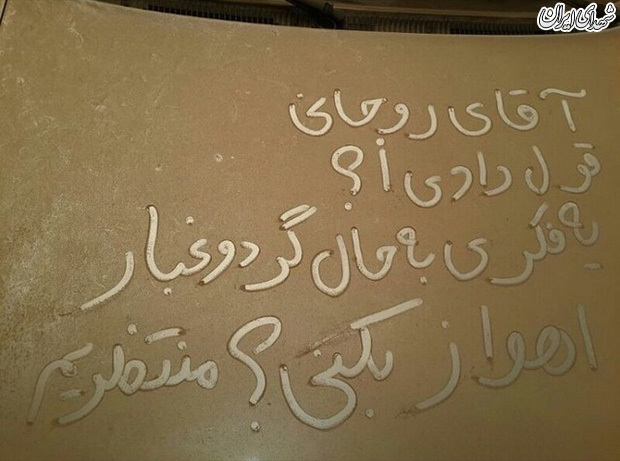 شهدای ایران
آقای روحانی
قول دادی !؟
یه فکری به حال گرد و غبار
اهواز بکنی؟ منتظریم